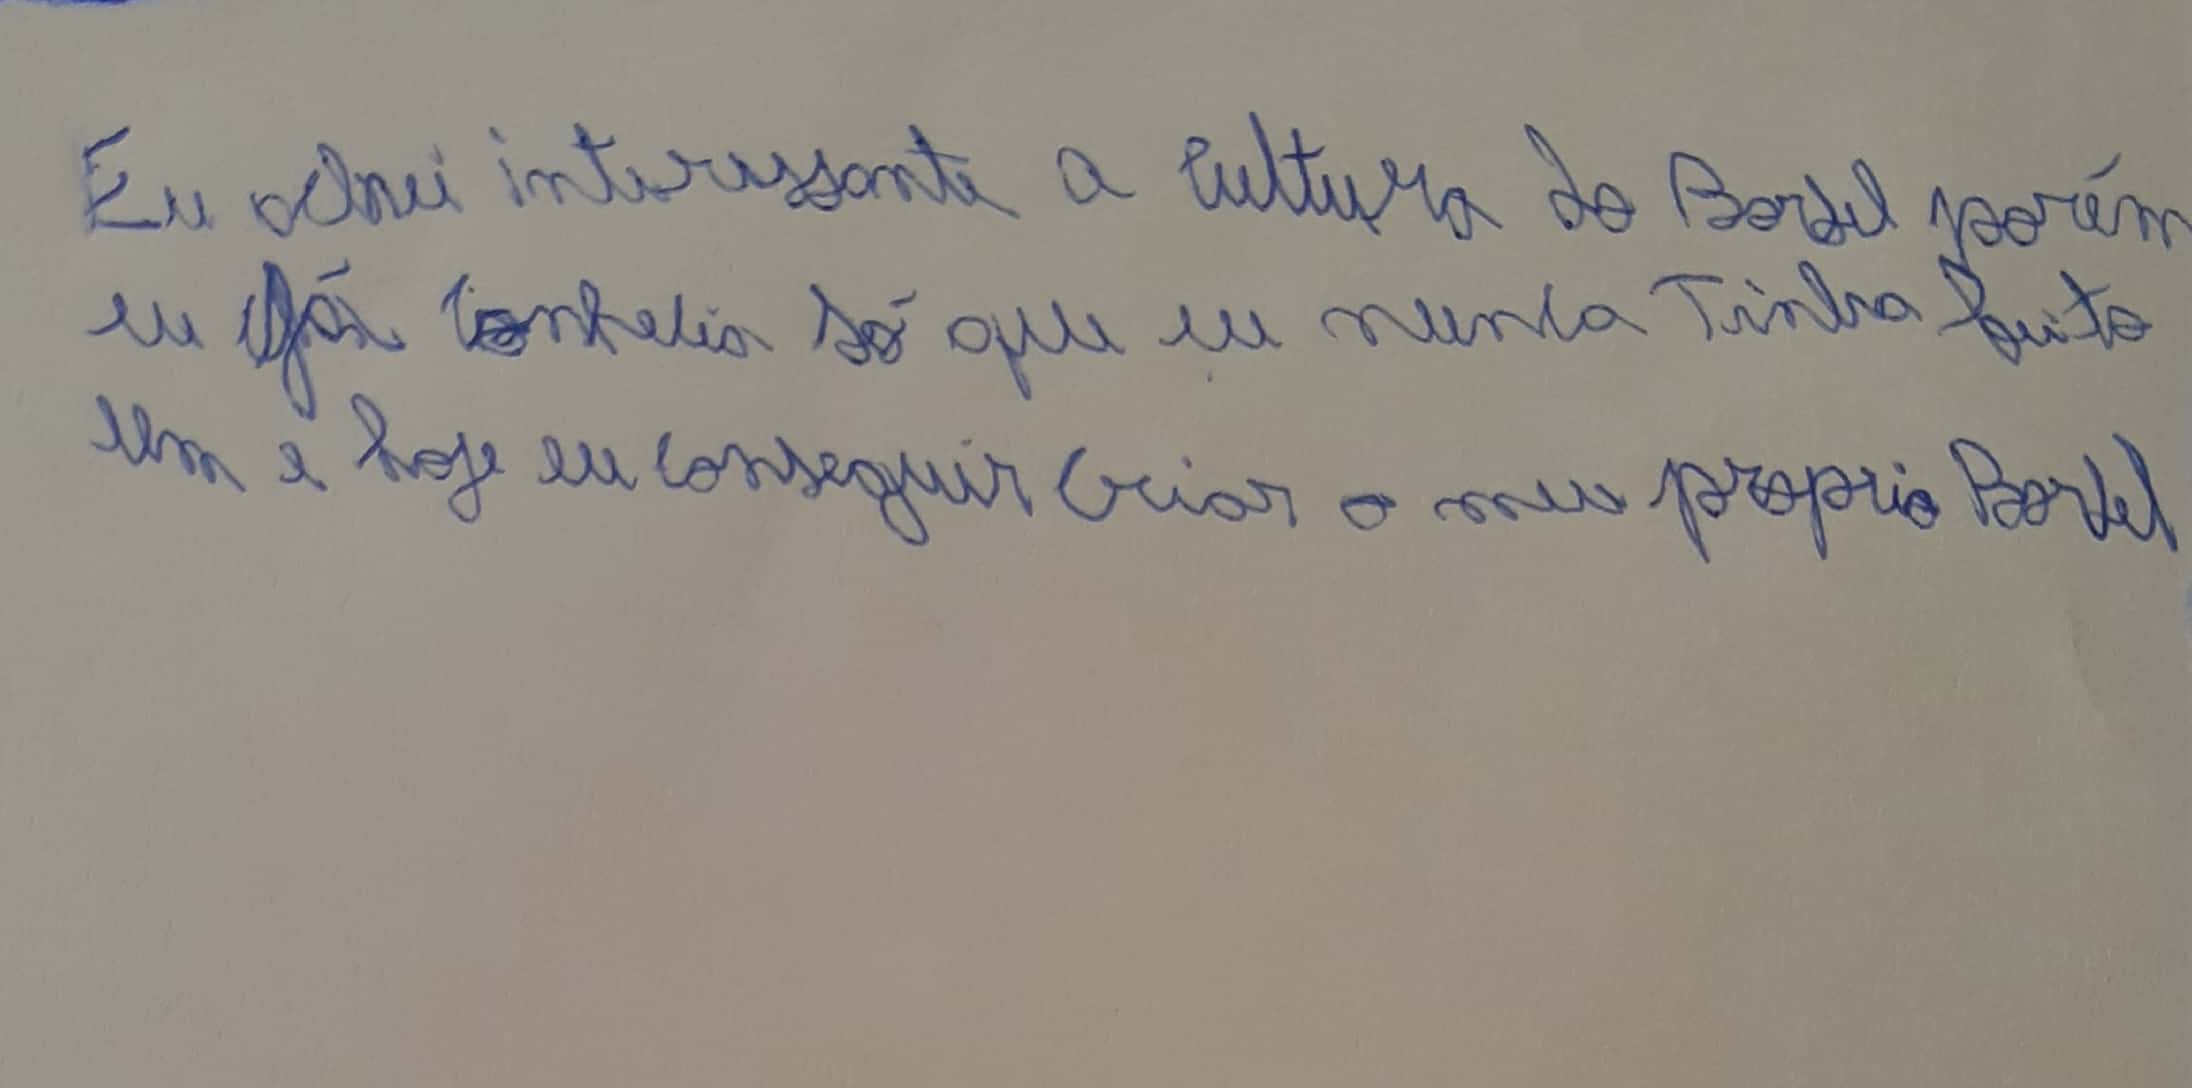 Eu achei interessante a cultura do Bordel porém
eu já conhecia só que eu nunca Tinha feito
um e hoje eu conseguir criar o meu proprio Bordel